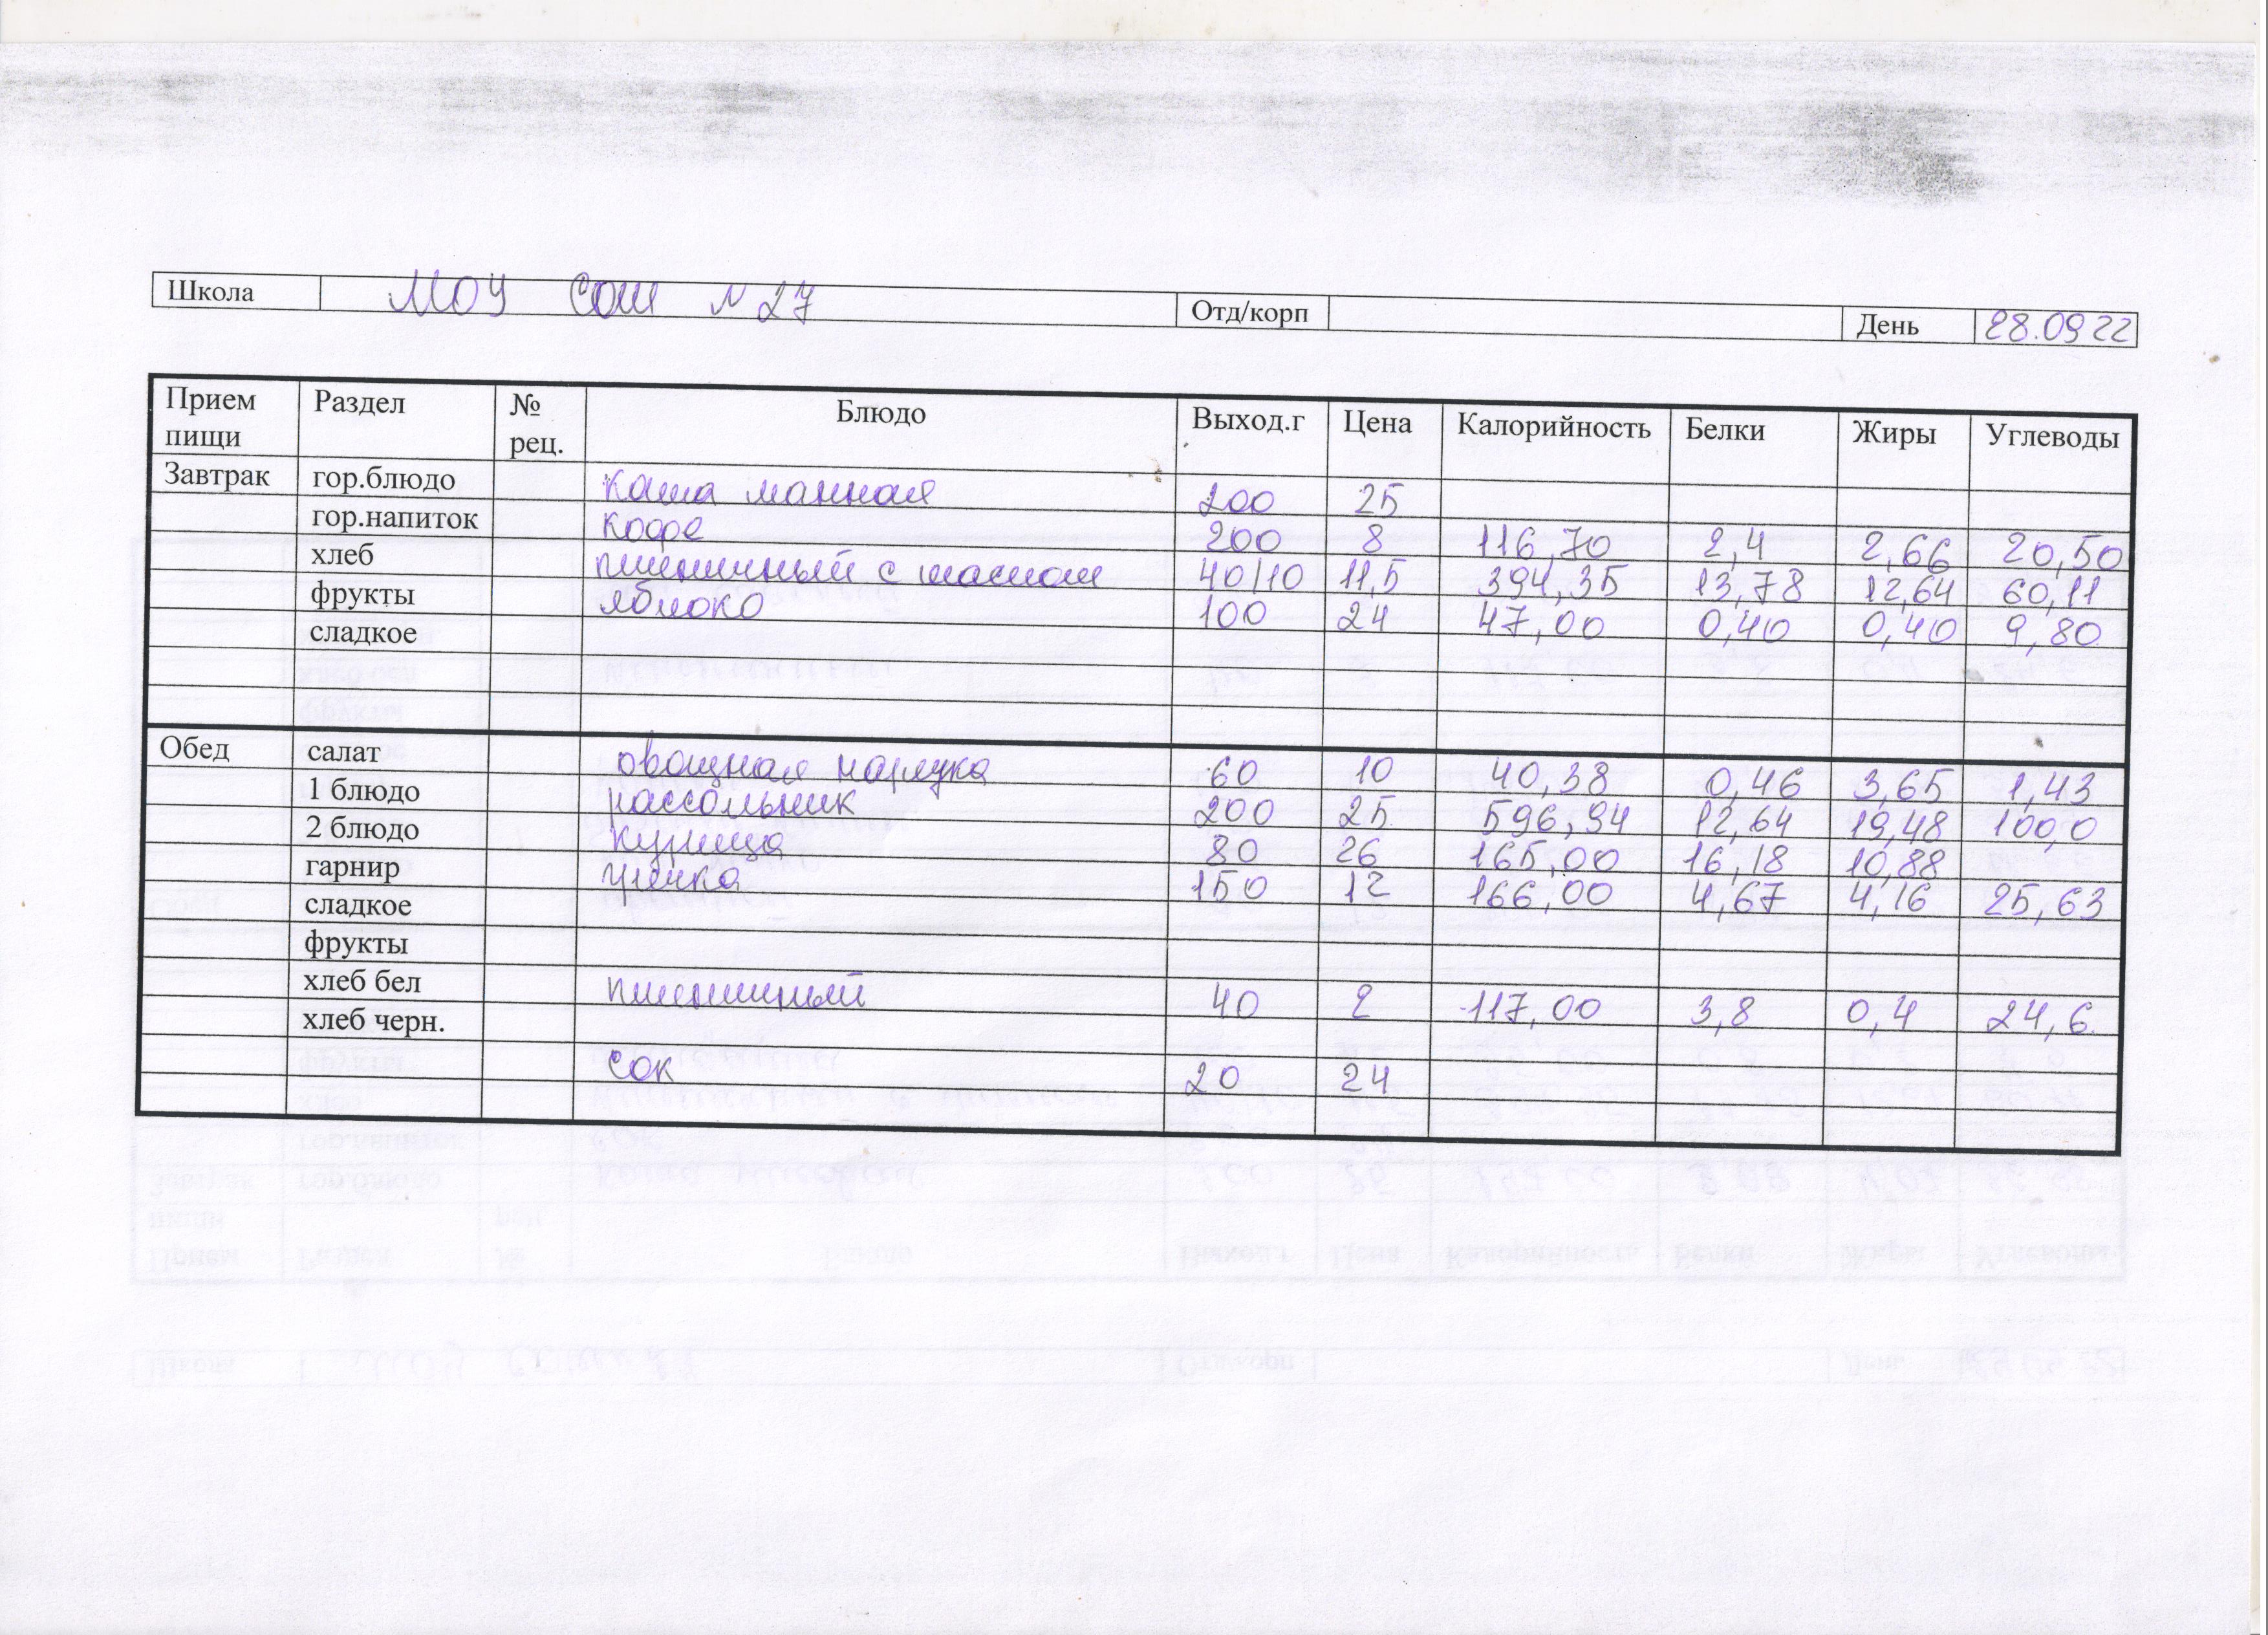 Школа МОУ СОШ N 27 Отд/корп День 28.09 22
Прием пищи Раздел № рец. Блюдо Выход.г Цена Калорийность Белки Жиры Углеводы
Завтрак гор.блюдо каша манная 200 25
гор.напиток кофе 200 8 116,70 2,4 2,66 20,50
хлеб пшеничный с маслом 40/10 11,5 394,35 13,78 12,64 60,11
фрукты яблоко 100 24 47,00 0,40 0,40 9,80
сладкое
Обед салат овощная нарезка 60 10 40,38 0,46 3,65 1,43
1 блюдо рассольник 200 25 596,94 12,64 19,48 100,0
2 блюдо курица 80 26 165,00 16,18 10,88
гарнир гречка 150 12 166,00 4,67 4,16 25,63
сладкое
фрукты
хлеб бел пшеничный 40 2 117,00 3,8 0,4 24,6
хлеб черн.
сок 20 24